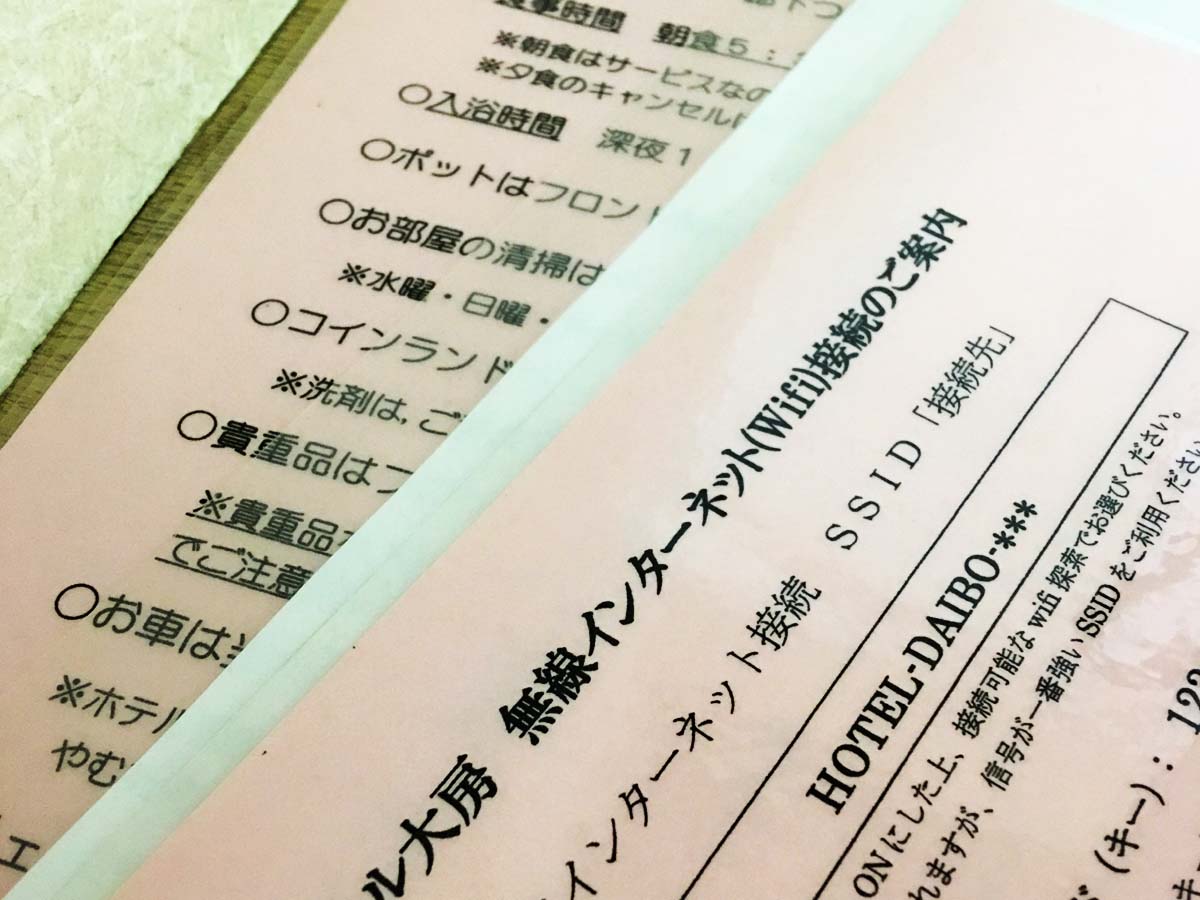 食事時間 朝食5:
※朝食はサービスなの
※夕食のキャンセルは
○入浴時間 深夜1
○ポットはフロント
○お部屋の清掃は
※水曜・日曜・
○コインランド
※洗剤は,ご
○貴重品はフ
※貴重品
でご注意
○お車は
※ホテル
やむ
ル大房 無線インターネット(Wifi)接続のご案内
インターネット接続 SSID「接続先」
HOTEL-DAIBO-***
ONにした上、接続可能なwifi探索でお選びください。
れますが、信号が一番強いSSIDをご利用ください
(キー):122